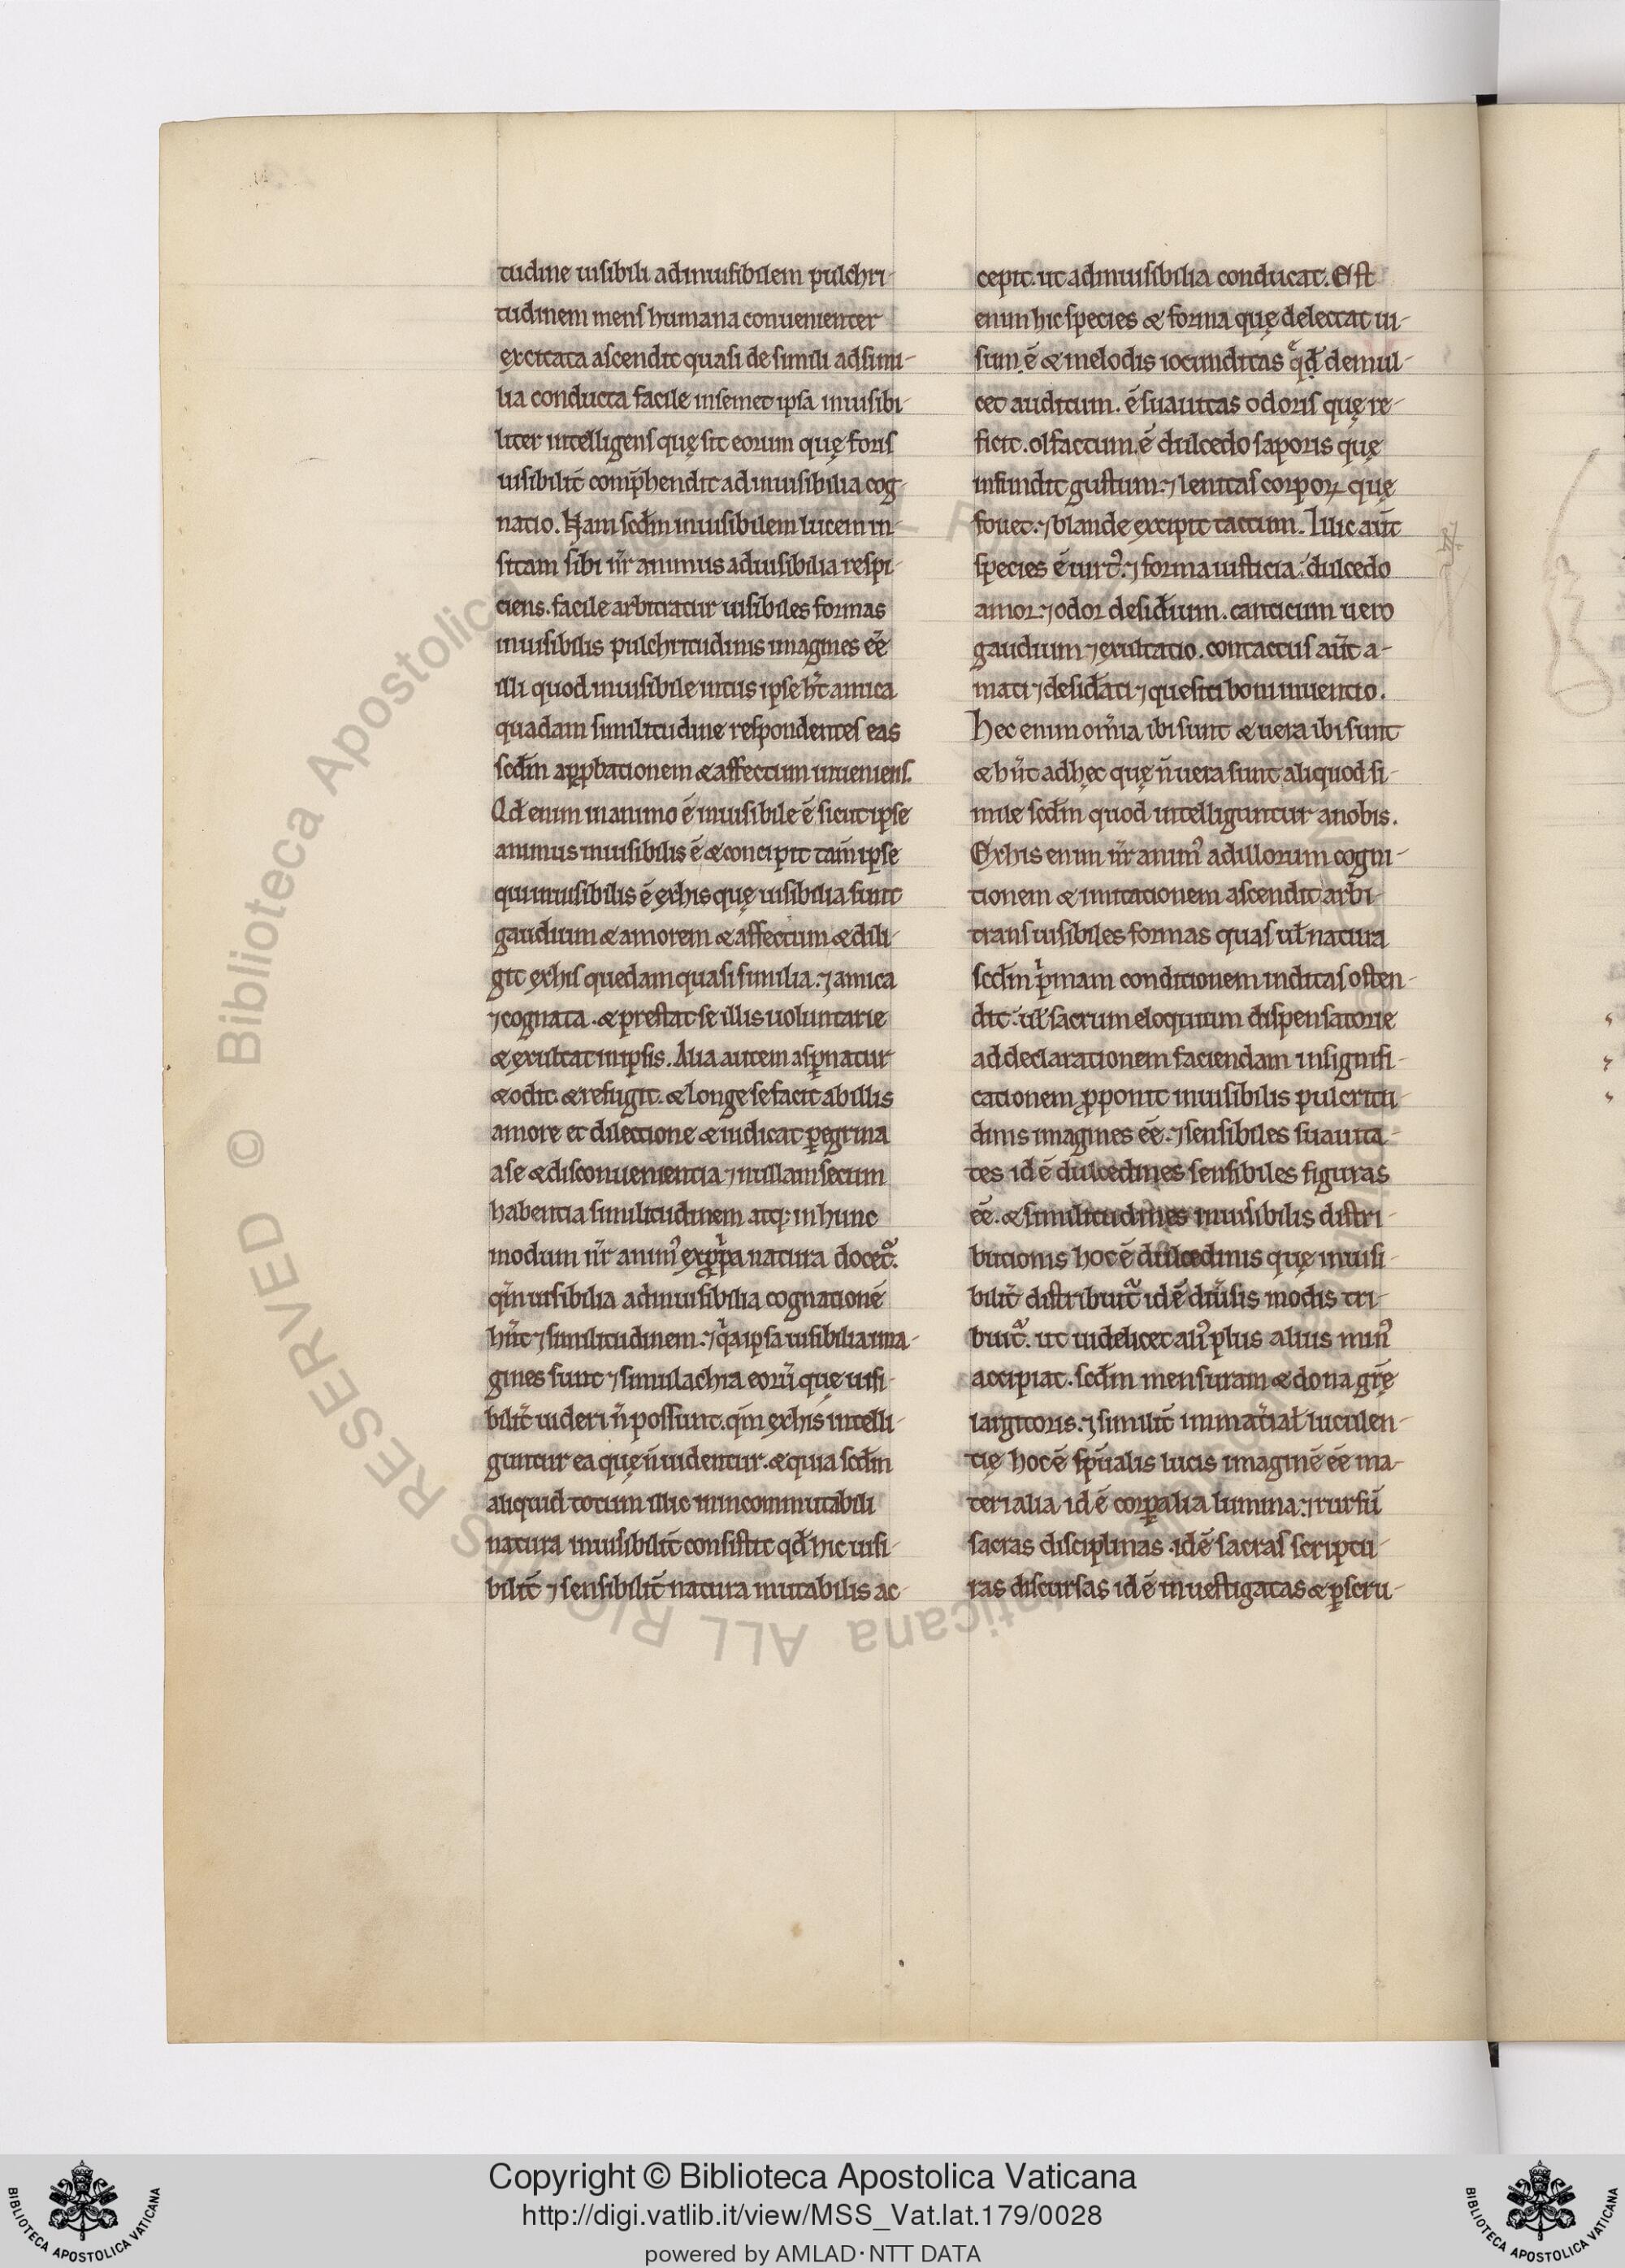 tudine uisibili ad inuisibilem pulchri-
tudinem mens humana conuenienter
excitata ascendit quasi de simili ad simi-
lia conducta facile in semet ipsa inuisibi-
liter intelligens quę sit eorum quę foris
uisibilit̄ comp̄hendit ad inuisibilia cog-
natio. Nam scd̄m inuisibilem lucem in-
sitam sibi nr̄ animus ad uisibilia respi-
ciens. facile arbitratur uisibiles formas
inuisibilis pulchritudinis imagines ee̅
illi quod inuisibile intus ipse ht̄ amica
quadam similitudine respondentes eas
scd̄m app̱bationem & affectum inueniens.
Qd̄ enim in animo ē inuisibile ē sicut ipse
animus inuisibilis ē & concipit tam̄ ipse
qui inuisibilis ē ex his quę uisibilia sunt
gaudium & amorem & affectum & dili-
git ex his quedam quasi similia. ⁊ amica
⁊ cognata. & prestat se illis uoluntarie
& exultat in ipsis. Alia autem asp̱natur
& odit & refugit. & longe se facit ab illis
amore et dilectione & iudicat p̱egrina
a se & disconuenientia ⁊ nullam secum
habentia similitudinem atq; in hunc
modum nr̄ anim᾽ ex pp̱a natura docet᷑.
qm̄ uisibilia ad inuisibilia cognationē
hn̄t ⁊ similitudinem. ⁊ qa ipsa uisibilia ima-
gines sunt ⁊ simulachra eorū que uisi-
bilit̄ uideri n̄ possunt. qm̄ ex his intelli-
guntur ea quę n̄ uidentur. & quia scd̄m
aliquid totum illic in incommutabili
natura inuisibilit̄ consistit qd̄ hic uisi-
bilit̄ ⁊ sensibilit̄ natura mutabilis ac-
cepit. ut ad inuisibilia conducat. Est
enim hic species & forma quę delectat ui-
sum. ē & melodis iocunditas qd̄ demul-
cet auditum. ē suauitas odoris quę re-
ficit. olfactum. ē dulcedo saporis quę
infundit gustum. ⁊ lenitas corpoꝝ quę
fouet. ⁊ blande excipit tactum. Illic aut̄
species ē uirt᾽. ⁊ forma iusticia. dulcedo
amor. ⁊ odor desid̄ium. canticum uero
gaudium ⁊ exultatio. contactus aut̄ a-
mati ⁊ desid̄ati ⁊ quesiti boni inuentio.
Hec enim om̄ia ibi sunt & uera ibi sunt
& hn̄t ad hęc quę n̄ uera sunt aliquod si-
mile scd̄m quod intelliguntur a nobis.
Ex his enim nr̄ anim᾽ ad illorum cogni-
tionem & imitationem ascendit arbi-
trans uisibiles formas quas uł natura
scd̄m p̄mam conditionem inditas osten-
dit. uł sacrum eloquium dispensatorie
ad declarationem faciendam in signifi-
cationem p̱ponit inuisibilis pulcritu-
dinis imagines ee̅. ⁊ sensibiles suauita-
tes id ē dulcedines sensibiles figuras
ee̅. & similitudines inuisibilis distri-
butionis hoc ē dulcedinis quę inuisi-
bilit̄ distribuit᷑ id ē diu̅sis modis tri-
buit᷑. ut uidelicet ali᾽ plus alius min᾽
accipiat. scd̄m mensuram & dona gr̄ę
largitoris. ⁊ similit̄ immat̄iał luculen-
tię hoc ē sp̄ualis lucis imaginē ee̅ ma-
terialia id ē corp̱alia lumina. ⁊ rursū
sacras disciplinas. id ē sacras scriptu-
ras discursas id ē inuestigatas & p̱scru-
Copyright © Biblioteca Apostolica Vaticana
http://digi.vatlib.it/view/MSS_Vat.lat.179/0028
powered by AMLAD·NTT DATA
BIBLIOTECA APOSTOLICA VATICANA
BIBLIOTECA APOSTOLICA VATICANA